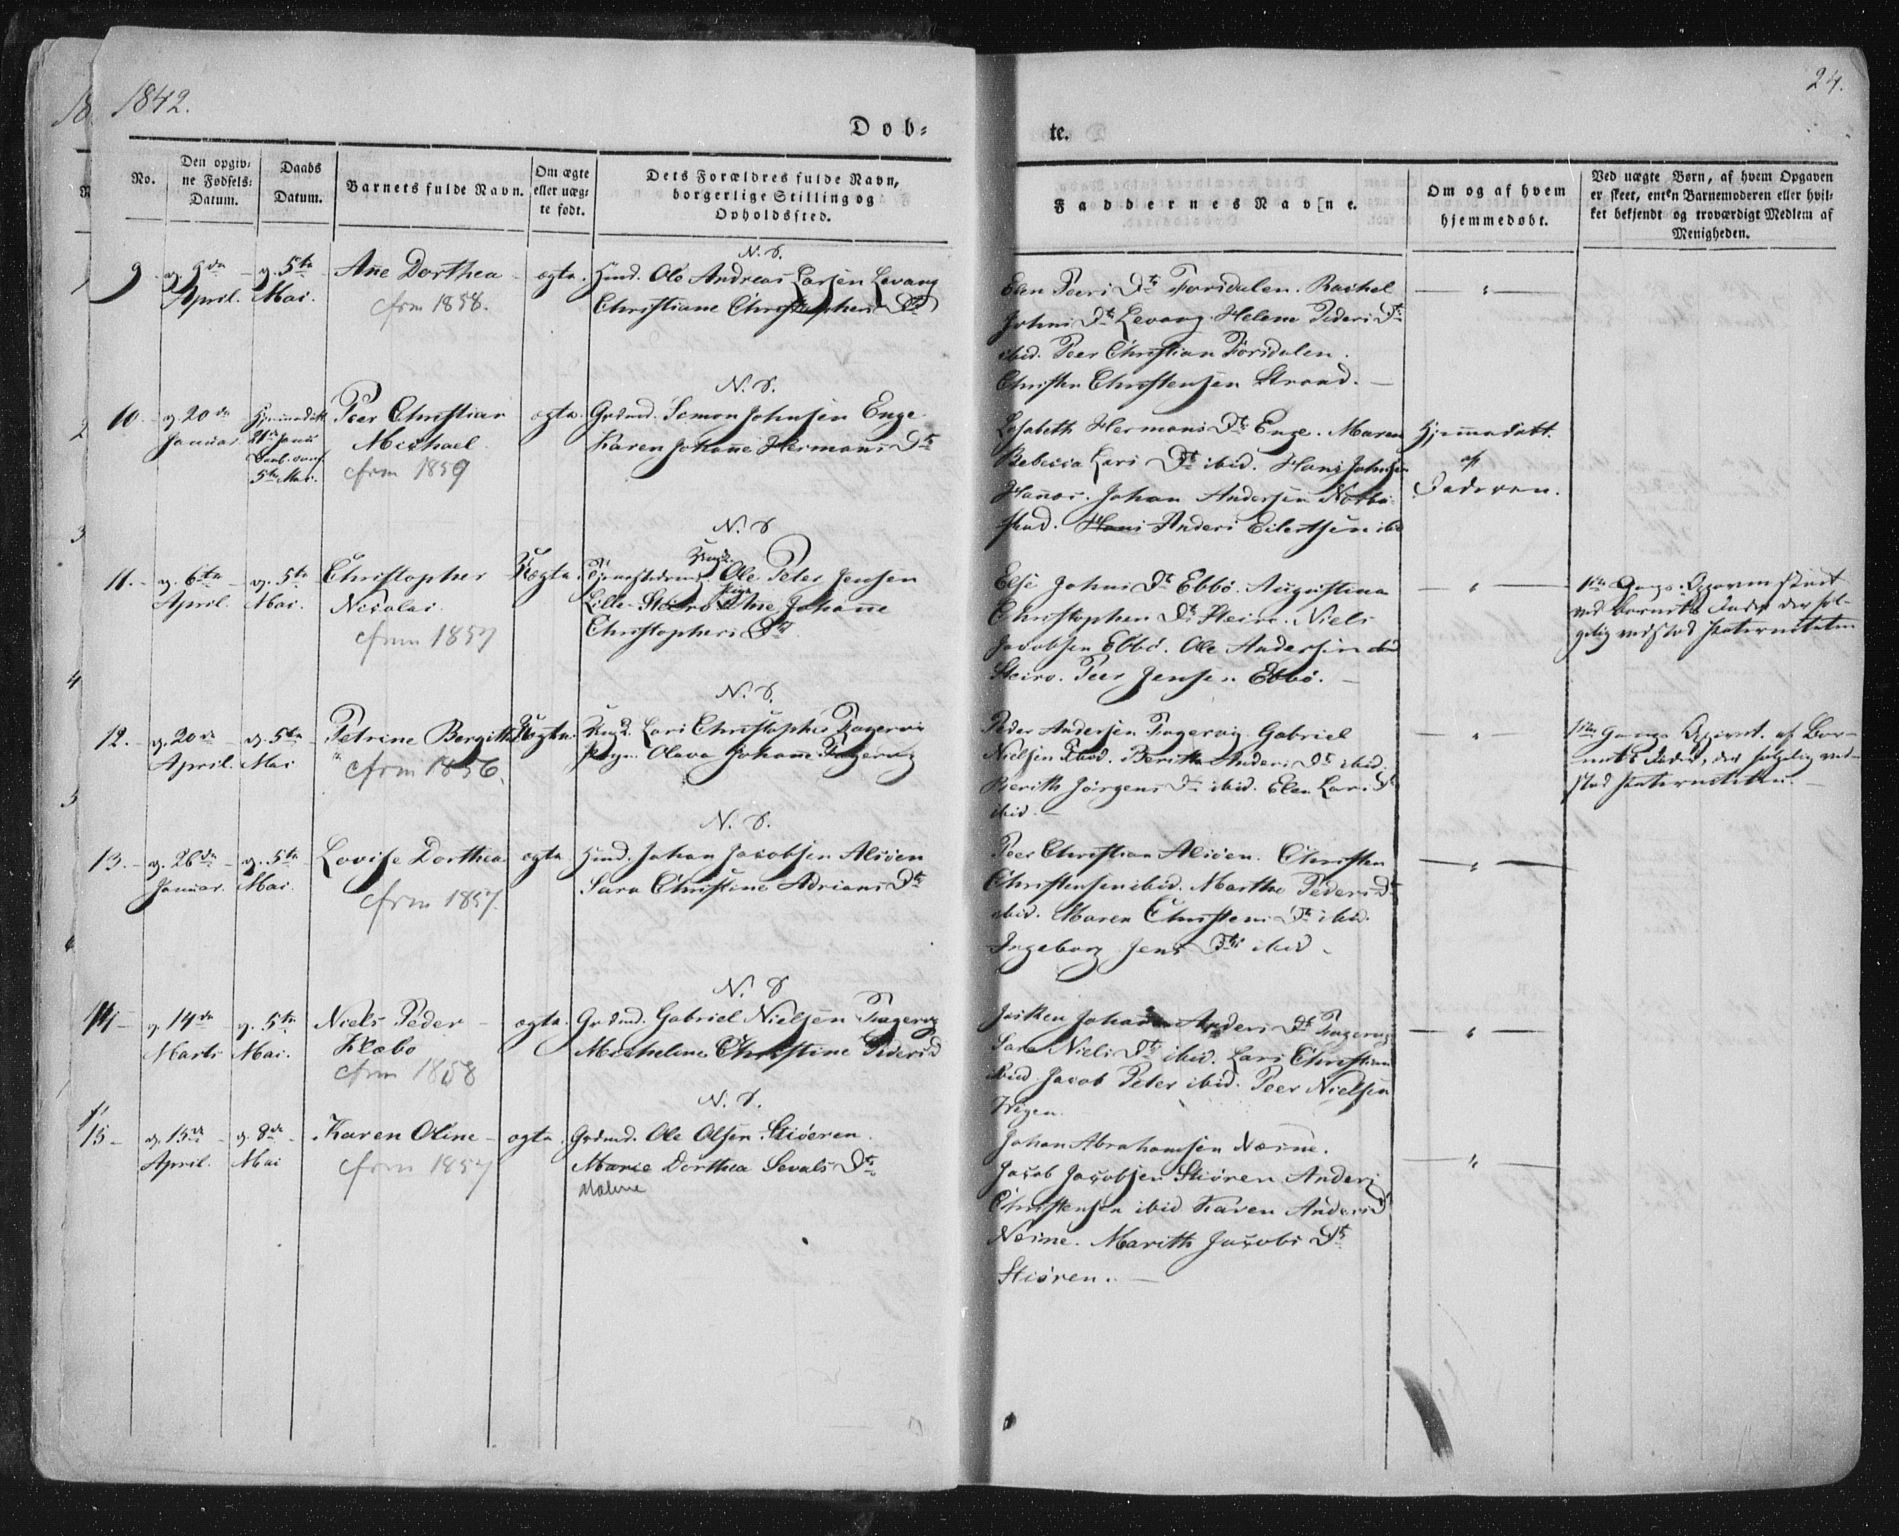 1842.
24.
Dob=
te.
No.
Den opgiv=
ne Fødsels=
Datum.
Daabs
Datum.
Barnets fulde Navn.
Om ægte
eller uæg=
te født.
Dets Forældres fulde Navn,
borgerlige Stilling og
Opholdssted.
Faddernes Navne.
Om og af hvem
hjemmedøbt.
Ved uægte Børn, af hvem Opgaven
er skeet, enten Barnemoderen eller hvil=
ket bekjendt og troværdigt Medlem af
Menigheden.
N. S.
9
April.
5te
Mai.
Ane Dorthea
cfrm 1858.
ægte.
Huusd. Ole Andreas Larsen Levang
Christiane Christophers Dt
Elen Peers Dt Forsdalen. Rachel
Johns Dt Levang. Helene Peders Dt
ibid. Peer Christian Forsdalen.
Christen Christensen Strand.
N. S.
10.
20de
Januar
Hjemmedøbt
5te Mai.
Peer Christian
Michael
cfrm 1859
ægte.
Grdmd. Simon Johnsen Enge
Karen Johane Hermans Dt
Lisabeth Hermans Dt Enge. Maren
Rebecca Lars Dt ibid. Hans Johnsen
Johan Andersen
Anders Eilertsen ibid
Hjemmedøbt
af
Faderen.
N. S.
11.
6te
April.
5te
Mai.
Christopher
Nicolai
cfrm 1857
Uægte.
Ungk.
Ole Peter Jensen
Lille Ane Johane
Christophers Dt
Else Johns Dt Ebbø. Augustina
Christophers Dt Niels
Jacobsen Ebbø. Ole Andersen
Peer Jensen Ebbø.
1ste Gangs
ved Barnets Fader der føl-
gelig vedstod Paterniteten
N. S.
12.
20de
April.
5te
Mai
Petrine Bergitte
cfrm 1856.
Uægte.
Ungk. Lars Christopher Fagervig
Pige Olava Johane Fagervig
Peder Andersen Fagervig. Gabriel
Nielsen ibid. Berith Anders Dt ibid.
Berith Jørgens Dt ibid. Elen Lars Dt
ibid.
1ste Gangs af Bar-
nets Fader, der følgelig ved-
stod Paterniteten.
N. S.
13.
26de
Januar.
5te
Mai.
Lovise Dorthea
cfrm 1857.
ægte
Huusd. Johan Jacobsen Alsøen
Sara Christine Adrians Dt
Peer Christian Alsøen. Christen
Christensen ibid. Marthe Peders Dt
ibid. Maren Christens Dt ibid.
Ingeborg Jens Dt ibid.
N. S.
14
14de
Marts
5te
Mai.
Niels Peder
Klæbo
cfrm 1858
ægte.
Grdmd. Gabriel Nielsen Fagervig
Micheline Christine Peders D
Johan Anders Dt Fagervig
Sara Niels Dt ibid. Lars Christian
ibid Jacob Peter ibid. Peer Nielsen
N. S.
15
15de
April.
8de
Mai
Karen Oline
cfrm 1857
ægte.
Grdmd. Ole Olsen Stiøren.
Marie Dorthea Sevals Dt
Malene
Johan Abrahamsen Nesine.
Jacob Jacobsen Stiøren Anders
Christensen ibid Karen Anders D
Nesine. Marith Jacobs Dt
Stiøren.